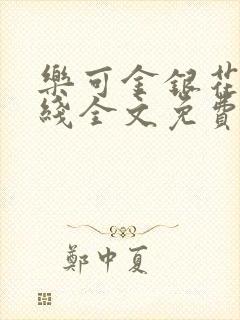 樂可金銀花
綫全文免費
鄭中夏